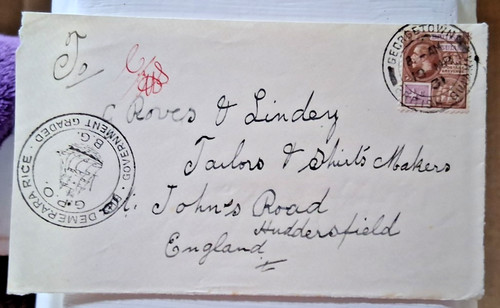 To
GEORGETOWN
Roves & Lindley
Tailors & Shirt's Makers
St. John's Road
Huddersfield
England
DEMERARA RICE · GOVERNMENT GRADED ·
B.G.
G.P.O.